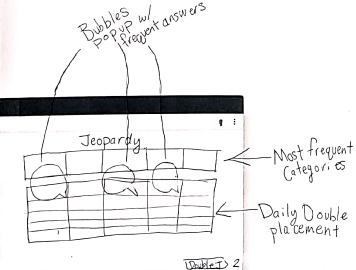 Bubbles
popup w/
frequent answers
Jeopardy
Most frequent
Categories
Daily Double
placement
Double J 2